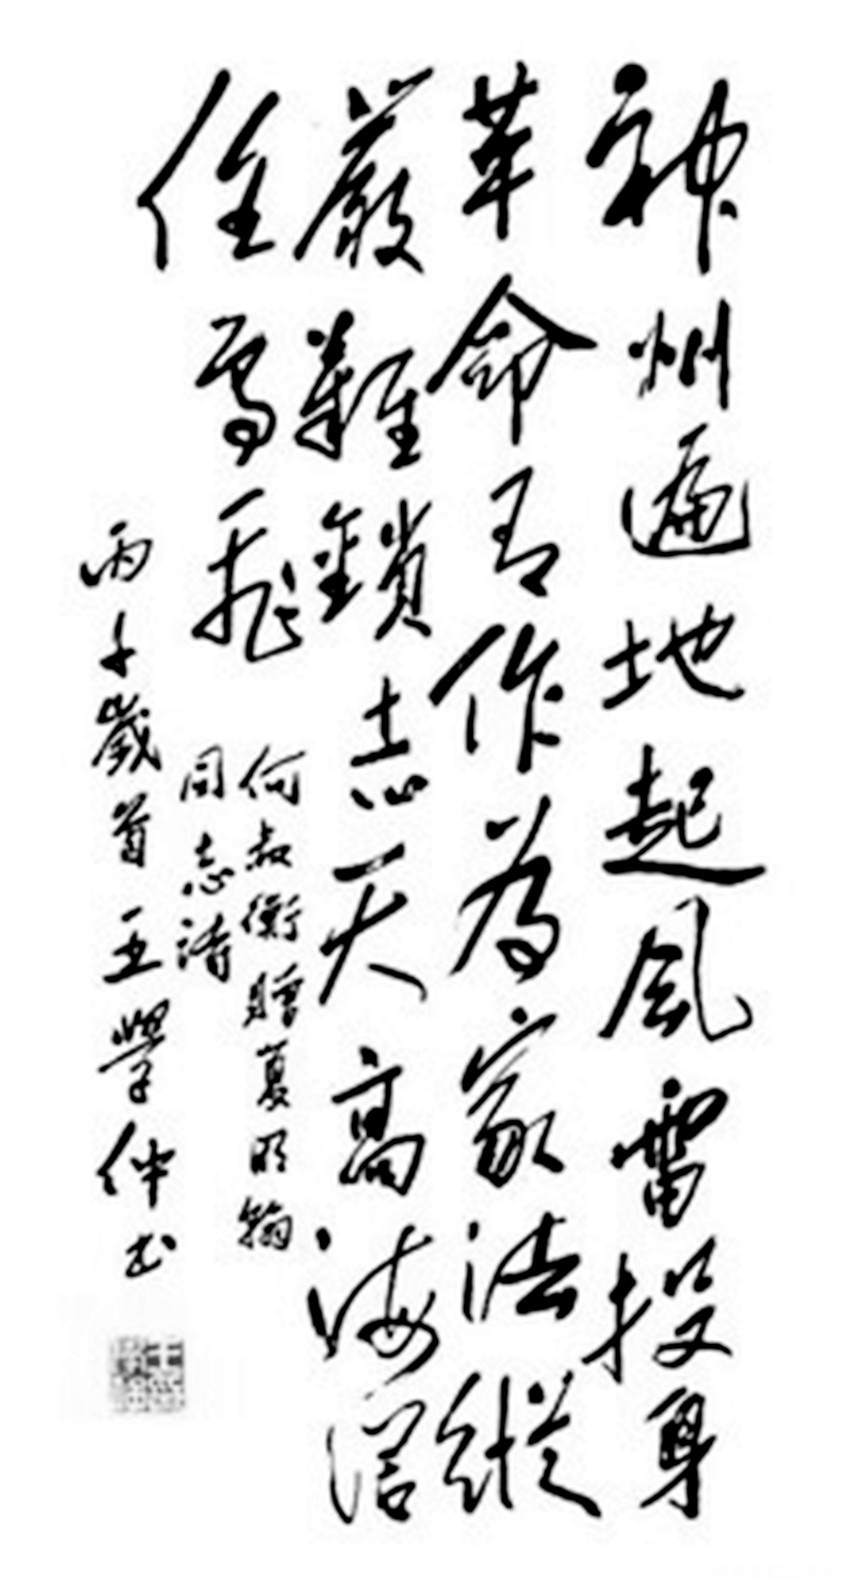 神州遍地起風雷投身
革命有作為家法縱
嚴難鎖志天高海濶
任鳥飛
何叔衡贈夏明翰
同志詩
丙子歲首王學仲書